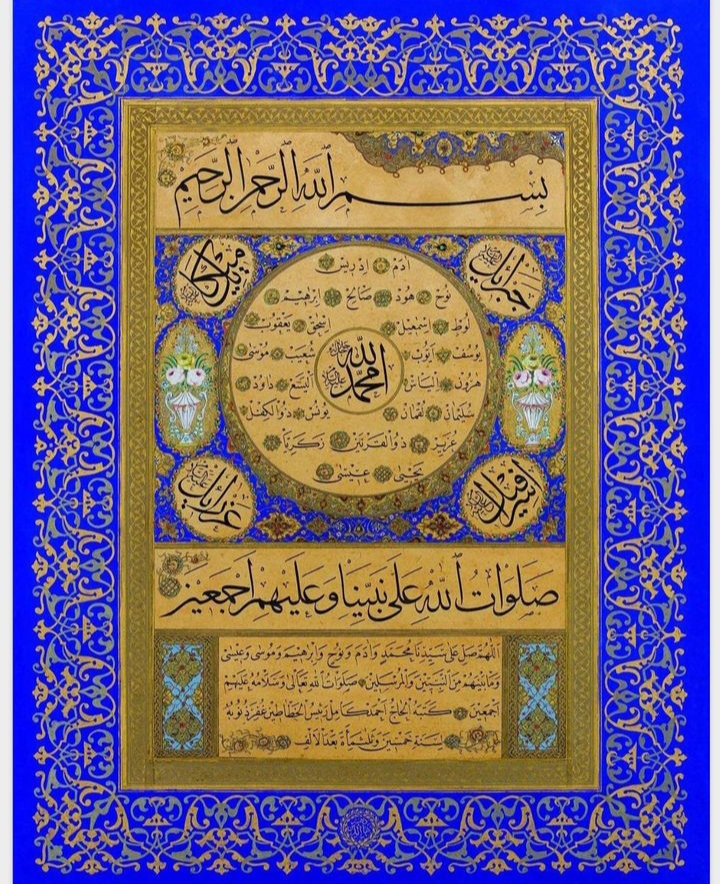 بسم الله الرحمن الرحيم
جبرائيل
ميكائيل
آدم ادريس
نوح هود صالح ابرهيم
لوط اسمعيل اسحق يعقوب
يوسف ايوب شعيب موسى
هرون الياس اليسع داود
سليمان لقمان يونس ذو الكفل
عزير ذو القرنين زكريا
يحيى عيسى
الله جل جلاله
محمد عليه السلام
اسرافيل
عزرائيل
صلوات الله على نبينا وعليهم اجمعين
اللهم صل على سيدنا محمد وآدم ونوح وابرهيم وموسى وعيسى
وما بينهم من النبيين والمرسلين صلوات الله تعالى وسلامه عليهم
اجمعين كتبه الحاج احمد كامل رئيس الخطاطين غفر ذنوبه
لسنة خمسين وثلثمأة بعد الالف